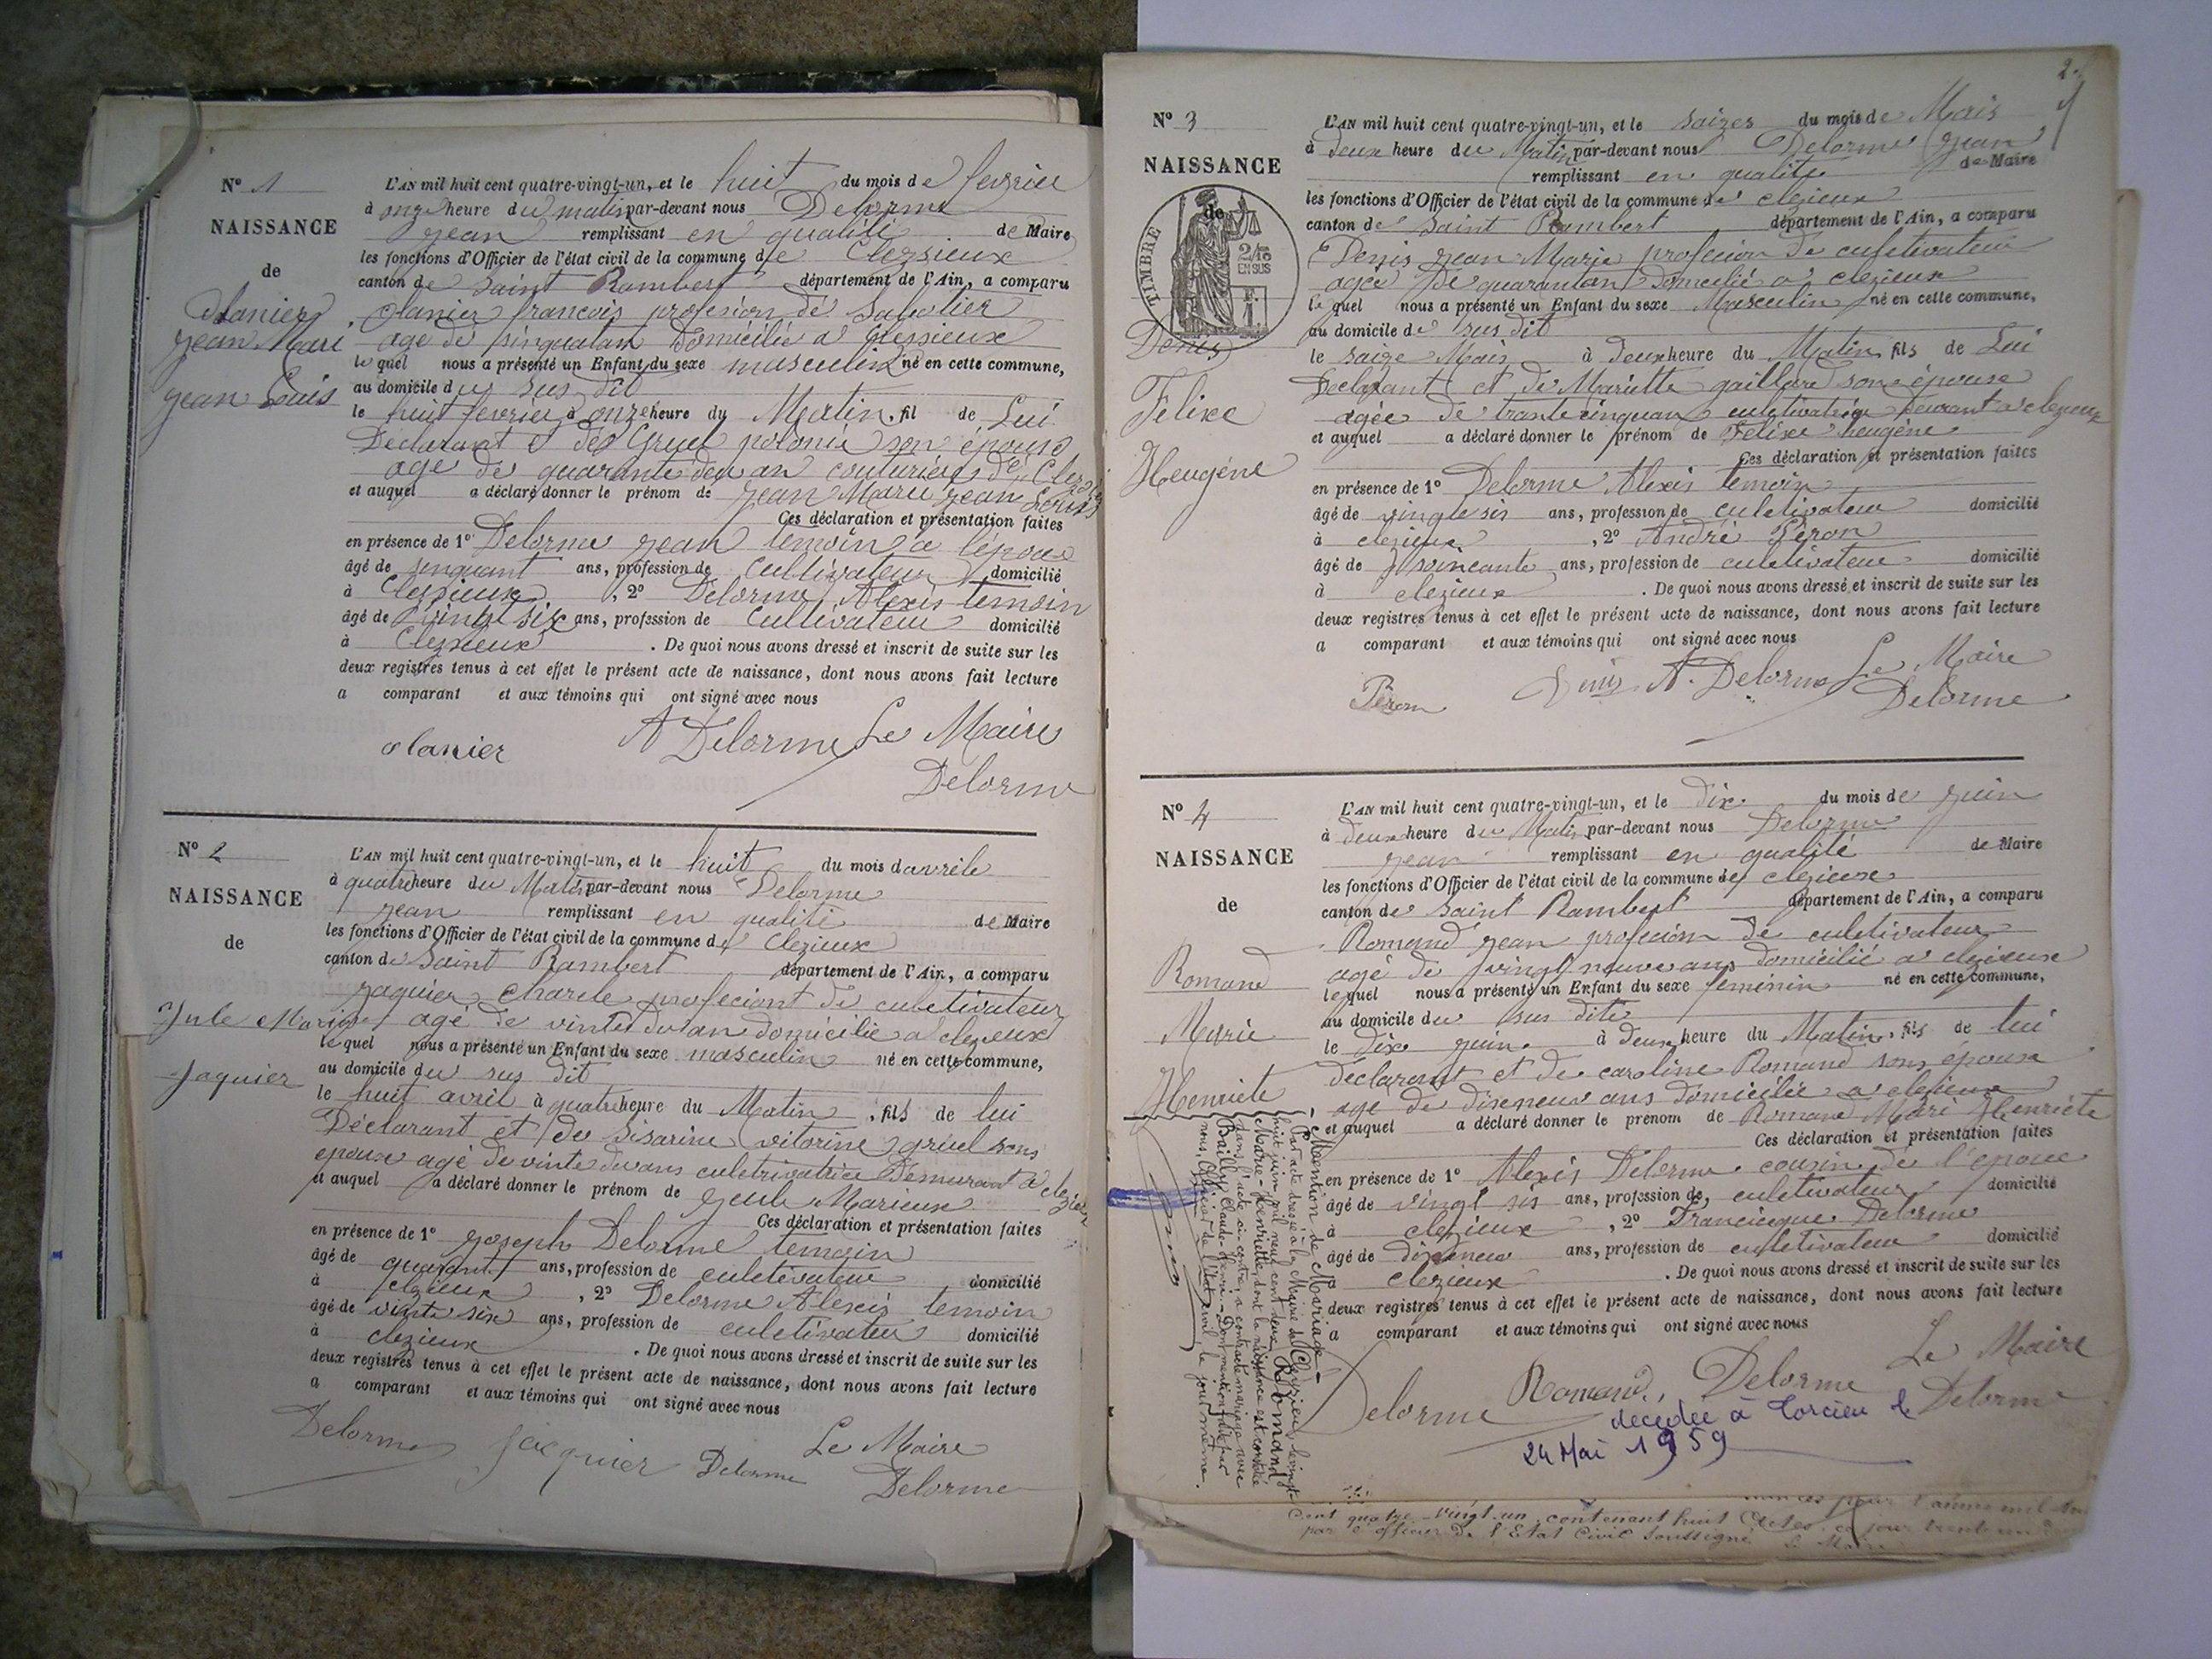 N° 1
NAISSANCE
de
olanier
jean Mari
jean Louis
L'AN mil huit cent quatre-vingt-un, et le huit du mois de fevrier
à onze heure du matin par-devant nous Delorme
jean remplissant en qualité de Maire
les fonctions d'Officier de l'état civil de la commune de Clezieux
canton de Saint Rambert département de l'Ain, a comparu
olanier francois profesion de Sabotier
age de sinquatan domicilie a Clezieux
le quel nous a présenté un Enfant du sexe masculin né en cette commune,
au domicile du sus dit
le huit fevrier à onze heure du Matin fil de Lui
Déclarant et de Gruel polonie son épouse
age de quarante deu an couturière de
et auquel a déclaré donner le prénom de jean Marie jean Louis
Ces déclaration et présentation faites
en présence de 1° Delorme jean temoin a l'épouse
âgé de senquant ans, profession de Cultivateur domicilié
à Clezieux, 2° Delorme Alexis temoin
âgé de vingt six ans, profession de Cultivateur domicilié
à Clezieux. De quoi nous avons dressé et inscrit de suite sur les
deux registres tenus à cet effet le présent acte de naissance, dont nous avons fait lecture
a comparant et aux témoins qui ont signé avec nous
olanier A Delorme Le Maire
Delorme
N° 2
NAISSANCE
de
Jule Marius
Jaquier
L'AN mil huit cent quatre-vingt-un, et le huit du mois d avrile
à quatre heure du Matin par-devant nous Delorme
jean remplissant en qualité de Maire
les fonctions d'Officier de l'état civil de la commune de Clezieux
canton de Saint Rambert département de l'Ain, a comparu
jaquier charele profeciont de culetivateur
agé de vinte du an domicilie a clezieux
le quel nous a présenté un Enfant du sexe masculin né en cette commune,
au domicile du sus dit
le huit avril à quatre heure du Matin, fils de lui
Déclarant et de Sisarine vitorine gruel sons
epouse agé de vinte deu ans culetrivatrice Demurant a clezieu
et auquel a déclaré donner le prénom de jule Marieux
Ces déclaration et présentation faites
en présence de 1° joseph Delorme temoin
âgé de quarant ans, profession de culetivateur domicilié
à clezieux, 2° Delorme Alexis temoin
âgé de vinte six ans, profession de culetivateur domicilié
à clezieux. De quoi nous avons dressé et inscrit de suite sur les
deux registres tenus à cet effet le présent acte de naissance, dont nous avons fait lecture
a comparant et aux témoins qui ont signé avec nous
Delorme Jacquier Delorme Le Maire
Delorme
2
N° 3
NAISSANCE
de
TIMBRE
2/10
EN SUS
Denis
Félixe
Heugéne
L'AN mil huit cent quatre-vingt-un, et le saizes du mois de Mais
à deux heure du Matin par-devant nous Delorme jean
remplissant en qualite de Maire
les fonctions d'Officier de l'état civil de la commune de clezieux
canton de Saint Rambert département de l'Ain, a comparu
Denis jean Marie profecion de culetivateur
agée de quarantan domecilié a clezieux
le quel nous a présenté un Enfant du sexe Masculin né en cette commune,
au domicile de sus dit
le saize Mais à deux heure du Matin fils de Lui
Declarant et de Mariette gaillard son épouse
agée de trante cinquans culetivatrice a clezieux
et auquel a déclaré donner le prénom de Félixe heugène
Ces déclaration et présentation faites
en présence de 1° Delorme Alexis temoin
âgé de vingte sis ans, profession de culetivateur domicilié
à clezieux, 2° André Péron
âgé de soincante ans, profession de culetivateur domicilié
à clezieux. De quoi nous avons dressé et inscrit de suite sur les
deux registres tenus à cet effet le présent acte de naissance, dont nous avons fait lecture
a comparant et aux témoins qui ont signé avec nous
Péron Denis A. Delorme Le Maire
Delorme
N° 4
NAISSANCE
de
Romand
Marie
Henriete
L'AN mil huit cent quatre-vingt-un, et le dix du mois de juin
à deux heure du Matin par-devant nous Delorme
jean remplissant en qualité de Maire
les fonctions d'Officier de l'état civil de la commune de clezieux
canton de Saint Rambert département de l'Ain, a comparu
Romand jean profecion de culetivateur
agé de vingt neuve ans domicilié a clezieux
le quel nous a présenté un Enfant du sexe feminin né en cette commune,
au domicile du sus dite
le dix juin à deux heure du Matin, fils de lui
déclarant et de caroline Romand sons épouse
agé de diseneuv ans domiciliée a clezieux
et auquel a déclaré donner le prénom de Romand Mari Henriéte
Ces déclaration et présentation faites
en présence de 1° Alexis Delorme cousin de l'epouse
âgé de vingt sis ans, profession de culetivateur domicilié
à clezieux, 2° Delorme
âgé de diseneuv ans, profession de culetivateur domicilié
à clezieux. De quoi nous avons dressé et inscrit de suite sur les
deux registres tenus à cet effet le présent acte de naissance, dont nous avons fait lecture
a comparant et aux témoins qui ont signé avec nous
Delorme Romand Delorme Le Maire
Delorme
decedée à Torcieu le
24 Mai 1959
Mention de Mariage
Par acte dressé à la Mairie de Cleyzieu, le vingt-
huit juin mil neuf cent deux, Romand
Marie-Henriette, dont la naissance est constatée
dans l'acte ci-contre, a contracté mariage avec
Bailly Claude-. Dont mention faite par
nous, Officier de l'Etat civil le jour même.
Cent quatre-vingt-un contenant huit Actes, ce jour trente un
par l'officier de l'Etat Civil Soussigné
Le Maire